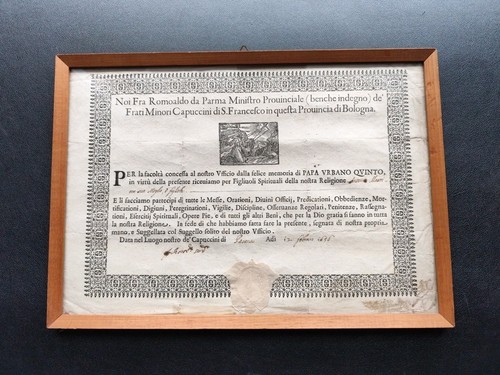 Noi Fra Romoaldo da Parma Ministro Prouinciale (benche indegno) de'
Frati Minori Capuccini di S. Francesco in questa Prouincia di Bologna.
PER la facoltà concessa al nostro Vfficio dalla felice memoria di PAPA VRBANO QVINTO,
in virtù della presente riceuiamo per Figliuoli Spirituali della nostra Religione
E li facciamo partecipi di tutte le Messe, Orationi, Diuini Officij, Predicationi, Obbedienze, Mor-
tificationi, Digiuni, Peregrinationi, Vigilie, Discipline, Osseruanze Regolari, Penitenze, Rassegna-
tioni, Esercitij Spirituali, Opere Pie, e di tutti gli altri Beni, che per la Dio gratia si fanno in tutta
la nostra Religione. In fede di che habbiamo fatta fare la presente, segnata di nostra propria
mano, e Suggellata col Suggello solito del nostro Vfficio.
Data nel Luogo nostro de' Capuccini di Adi 12